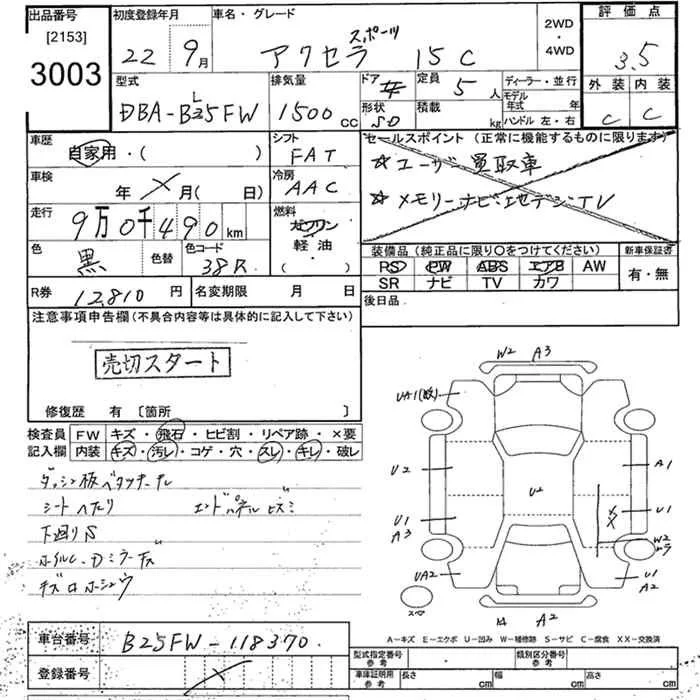 出品番号 [2153] 3003
初度登録年月 22年 9月
車名・グレード アクセラスポーツ 15C
2WD・4WD
評価点 3.5
外装 C 内装 C
型式 DBA-BL5FW
排気量 1500 CC
ドア
定員 5人
形状 5D
積載 kg
ディーラー・並行
モデル年式 年
ハンドル 左・右
車歴 自家用・( )
シフト FAT
車検 年 月( 日)
冷房 AAC
走行 9万0千490 km
燃料 ガソリン 軽油・( )
色 黒 色替 色コード 38R
R券 12810 円 名変期限 月 日
セールスポイント (正常に機能するものに限ります)
☆ユーザー買取車
☆メモリーナビ・
装備品 (純正品に限り〇をつけてください) 新車保証書
PS PW ABS エアB AW 有・無
SR ナビ TV カワ
後日品
注意事項申告欄(不具合内容等は具体的に記入して下さい)
売切スタート
修復歴 有 [箇所 ]
検査員記入欄
FW キズ・飛石・ヒビ割・リペア跡・×要
内装 キズ・汚レ・コゲ・穴・スレ・キレ・破レ
ダッシュ板ベタツキ
シートヘタリ エンドパネル
下廻りS
W2 A3
UA1
U2 A1
U2
U1 A3 U1
XX
W2
UA2 U1 A2
スペア
A2
A-キズ E-エクボ U-凹み W-補修跡 S-サビ C-腐食 XX-交換済
車台番号 B25FW-118370
登録番号
型式指定番号 参考 類別区分番号 参考
車庫証明用 参考 長さ cm 幅 cm 高さ cm